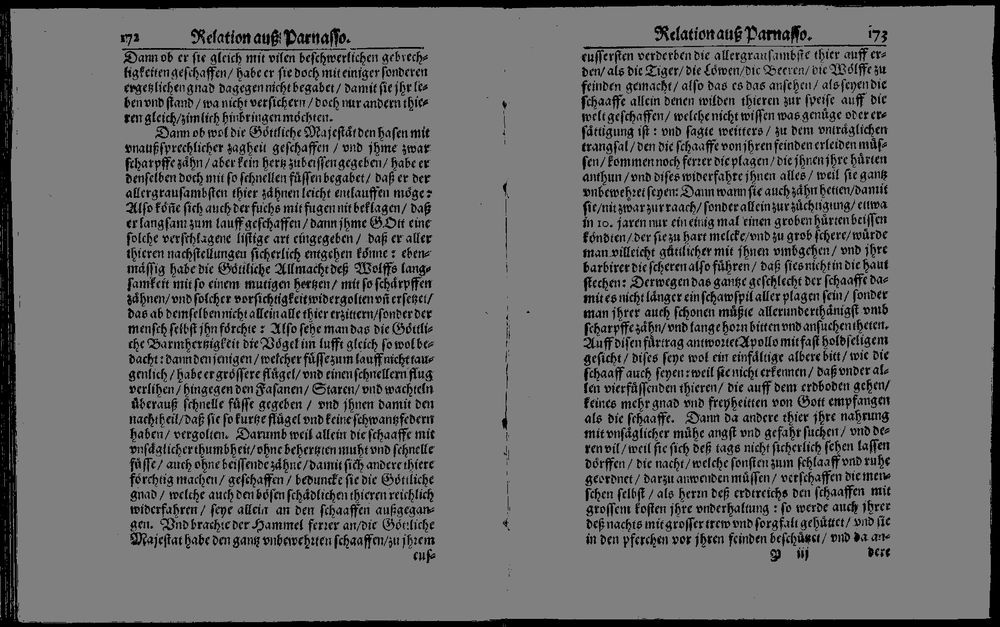 172 Relation auß Parnasso.
Dann ob er sie gleich mit vilen beschwerlichen gebrech-
ligkeiten geschaffen / habe er sie doch mit einiger sonderen
ergetzlichen gnad dagegen nicht begabet / damit sie jhr le-
ben vnd stand / wa nicht versichern / doch nur andern thie-
ren gleich / zimlich hinbringen möchten.
Dann ob wol die Göttliche Majestät den hasen mit
vnaußsprechlicher zagheit geschaffen / vnd jhme zwar
scharpffe zähn / aber kein hertz zubeissen gegeben / habe er
denselben doch mit so schnellen füssen begabet / daß er der
allergrausambsten thier zähnen leicht entlauffen möge:
Also köñe sich auch der fuchs mit fugen nit beklagen / daß
er langsam zum lauff geschaffen / dann jhme GOtt eine
solche verschlagene listige art eingegeben / daß er aller
thieren nachstellungen sicherlich entgehen könne: eben-
mässig habe die Göttliche Allmacht deß Wolffs lang-
samkeit mit so einem mutigen hertzen / mit so schärpffen
zähnen / vnd solcher vorsichtigkeit widergolten vñ ersetzt /
das ab demselben nicht allein alle thier erzittern / sonder der
mensch selbst jhn förchte: Also sehe man das die Göttli-
che Barmhertzigkeit die Vögel im lufft gleich so wol be-
dacht: dann denjenigen / welcher füsse zum lauff nicht tau-
genlich / habe er grössere flügel / vnd einen schnellern flug
verlihen / hingegen den Fasanen / Staren / vnd wachteln
überauß schnelle füsse gegeben / vnd jhnen damit den
nachtheil / daß sie so kurtze flügel vnd keine schwantzfedern
haben / vergolten. Darumb weil allein die schaaffe mit
vnsäglicher thumbheit / ohne behertzten muht vnd schnelle
füsse / auch ohne beissende zähne / damit sich andere thiere
förchtig machen / geschaffen / beduncke sie die Göttliche
gnad / welche auch den bösen schädlichen thieren reichlich
widerfahren / seye allein an den schaaffen außgegan-
gen. Vnd brachte der Hammel ferrer an / die Göttliche
Majestat habe den gantz vnbewehrten schaaffen / zu jhrem
eus-
Relation auß Parnasso. 173
eussersten verderben die allergrausambste thier auff er-
den / als die Tiger / die Löwen / die Beeren / die Wölffe zu
feinden gemacht / also das es das ansehen / als seyen die
schaaffe allein denen wilden thieren zur speise auff die
welt geschaffen / welche nicht wissen was genüge oder er-
sättigung ist: vnd sagte weitters / zu dem vnträglichen
trangsal / den die schaaffe von jhren feinden erleiden müs-
sen / kommen noch ferrer die plagen / die jhnen jhre hürten
anthun / vnd dises widerfahre jhnen alles / weil sie gantz
vnbewehret seyen: Dann wann sie auch zähn hetten / damit
sie / nit zwar zur raach / sonder allein zur züchtigung / ettwa
in 10. jaren nur ein einig mal einen groben hürten beissen
köndten / der sie zu hart melcke / vnd zu grob schere / würde
man villeicht güttlicher mit jhnen vmbgehen / vnd jhre
barbirer die scheren also führen / daß sies nicht in die haut
stechen: Derwegen das gantze geschlecht der schaaffe da-
mit es nicht länger ein schawspil aller plagen sein / sonder
man jhrer auch schonen müßte allerunderthänigst vmb
scharpffe zähn / vnd lange horn bitten vnd ansuchen theten.
Auff disen fürtrag antwortet Apollo mit fast holdseligem
gesicht / dises seye wol ein einfältige albere bitt / wie die
schaaff auch seyen: weil sie nicht erkennen / daß vnder al-
len vierfüssenden thieren / die auff dem erdboden gehen /
keines mehr gnad vnd freyheitten von Gott empfangen
als die schaaffe. Dann da andere thier jhre nahrung
mit vnsäglicher mühe angst vnd gefahr suchen / vnd de-
ren vil / weil sie sich deß tags nicht sicherlich sehen lassen
dörffen / die nacht / welche sonsten zum schlaaff vnd ruhe
geordnet / darzu anwenden müssen / verschaffen die men-
schen selbst / als herrn deß erdtreichs den schaaffen mit
grossem kosten jhre vnderhaltung: so werde auch jhrer
deß nachts mit grosser trew vnd sorgfalt gehüttet / vnd sie
in den pferchen vor jhren feinden beschützet / vnd da an-
Y iij dere